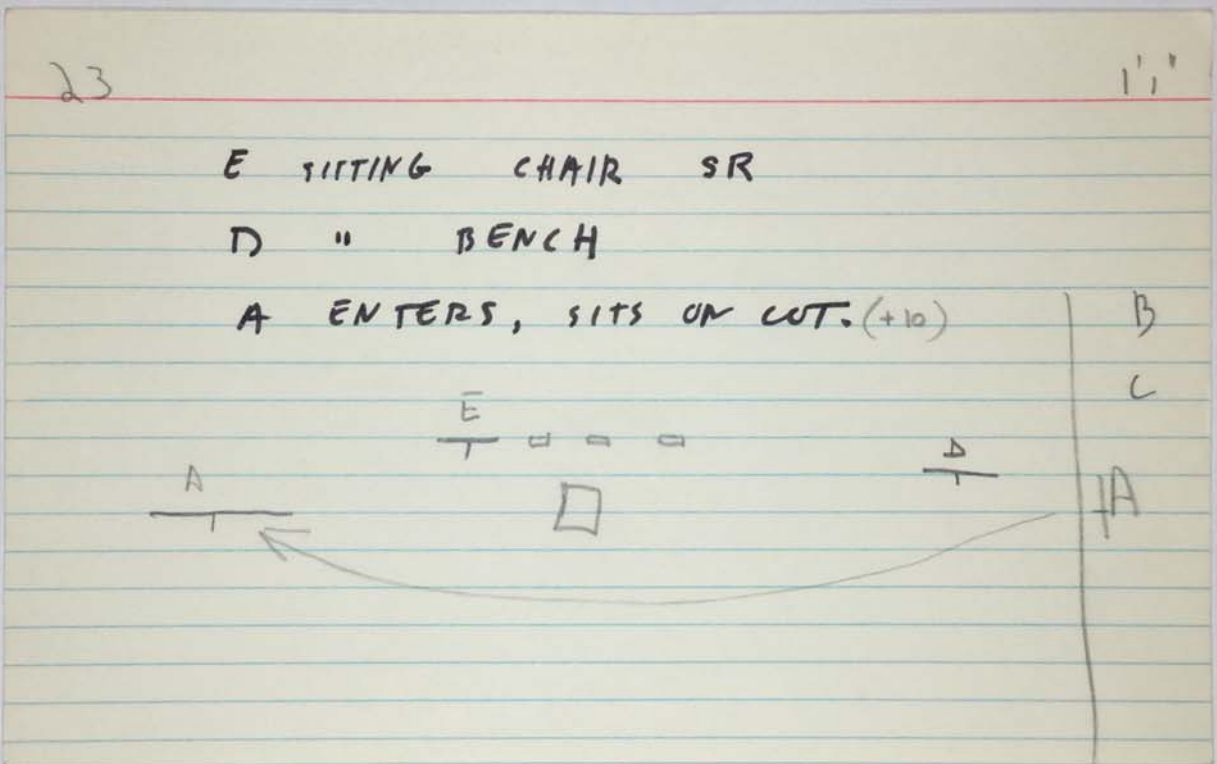 23 1'1"
E SITTING CHAIR SR
D " BENCH
A ENTERS, SITS ON COT. (+10)
B
C
E
D
A
A